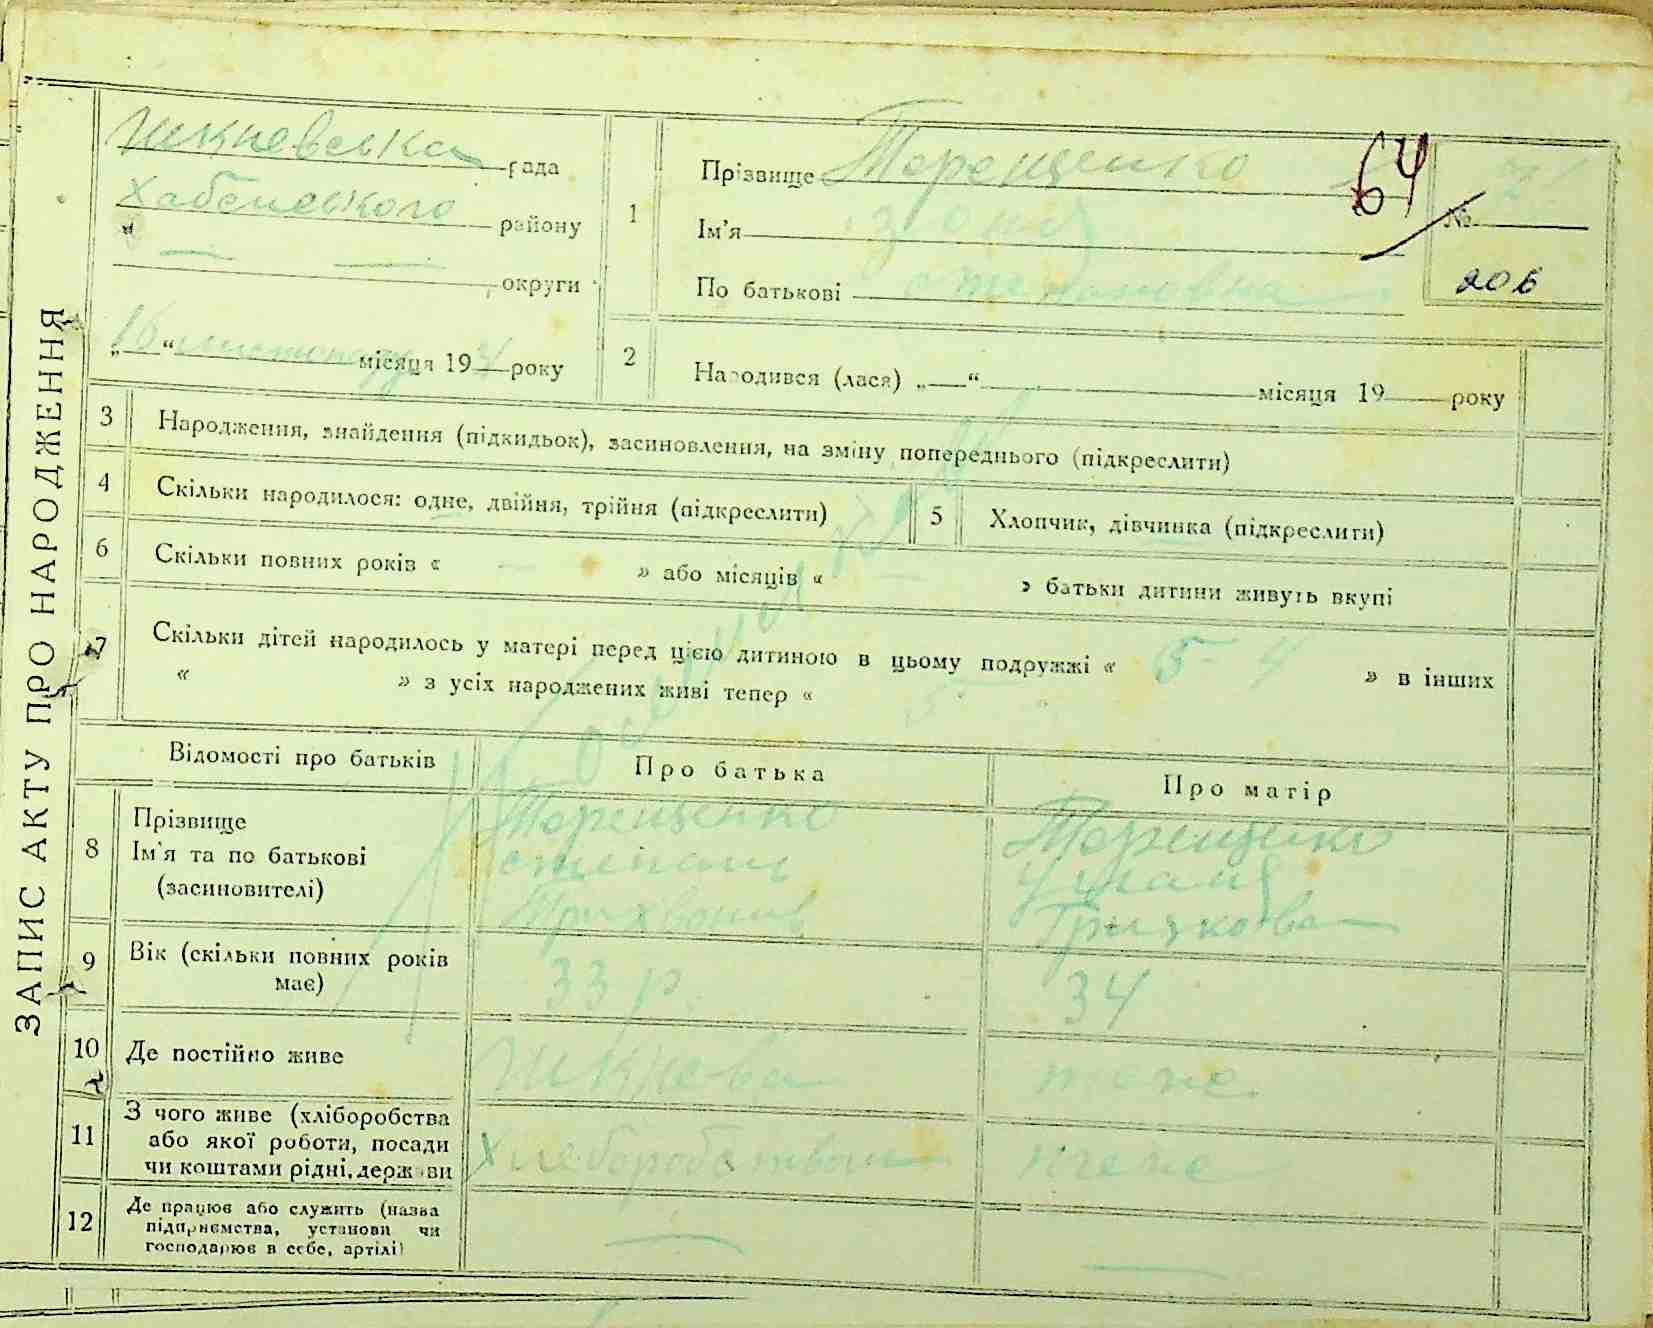 ЗАПИС АКТУ ПРО НАРОДЖЕННЯ
Шкневська рада
Хабенського району
округи
„16“ листопаду місяця 19 4 року
1
Прізвище Терещенко
Ім'я Зоня
По батькові Степановна
64
№ 7
206
2
Народився (лася) „ “ місяця 19 року
3 Народження, знайдення (підкидьок), засиновлення, на зміну попереднього (підкреслити)
4 Скільки народилося: одне, двійня, трійня (підкреслити)
5 Хлопчик, дівчинка (підкреслити)
6 Скільки повних років « — » або місяців « — » батьки дитини живуть вкупі
7 Скільки дітей народилось у матері перед цією дитиною в цьому подружжі « 5 - 4 » в інших
« » з усіх народжених живі тепер « 5
Відомості про батьків
Про батька
Про матір
8 Прізвище
Ім'я та по батькові
(засиновителі)
Терещенко
степан
Трихвонов
Терещенко
Уляня
9 Вік (скільки повних років
має)
33 р.
34
10 Де постійно живе
Шкнева
теже
11 З чого живе (хліборобства
або якої роботи, посади
чи коштами рідні, держави
Хлеборобством
теже
12 Де працює або служить (назва
підприємства, установи чи
господарює в себе, артілі)